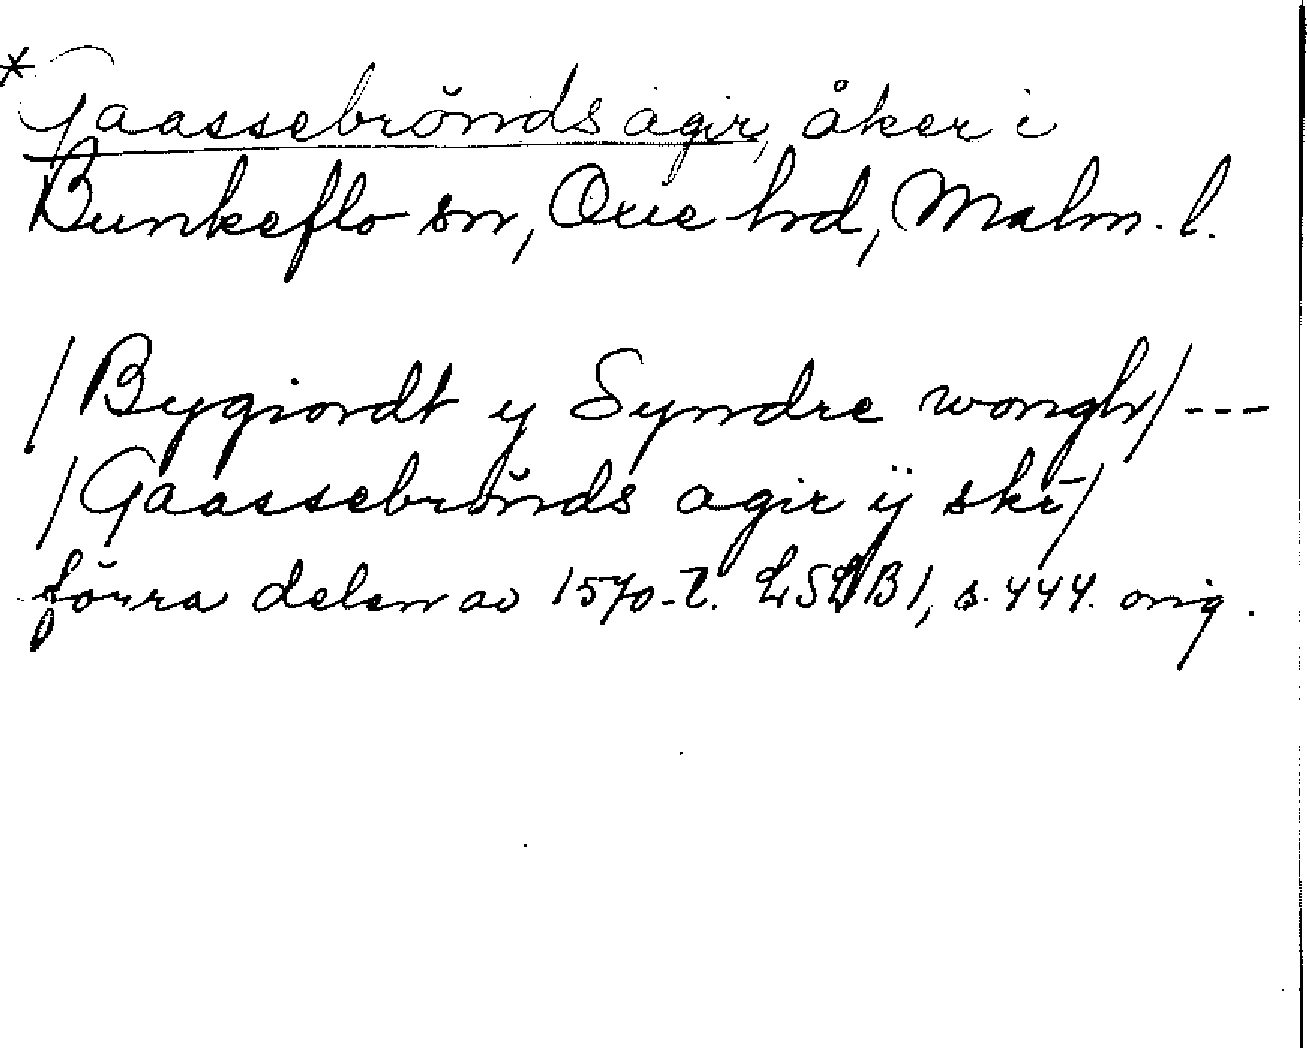 * Gaassebrönds agir, åker i
Bunkeflo sn, Oxie hd, Malm. l.
/Bygiordt y Syndre wongh/ ---
/Gaassebrönds agir ÿ ski/
förra delen av 1570-t. LSLB1, s. 444. orig.